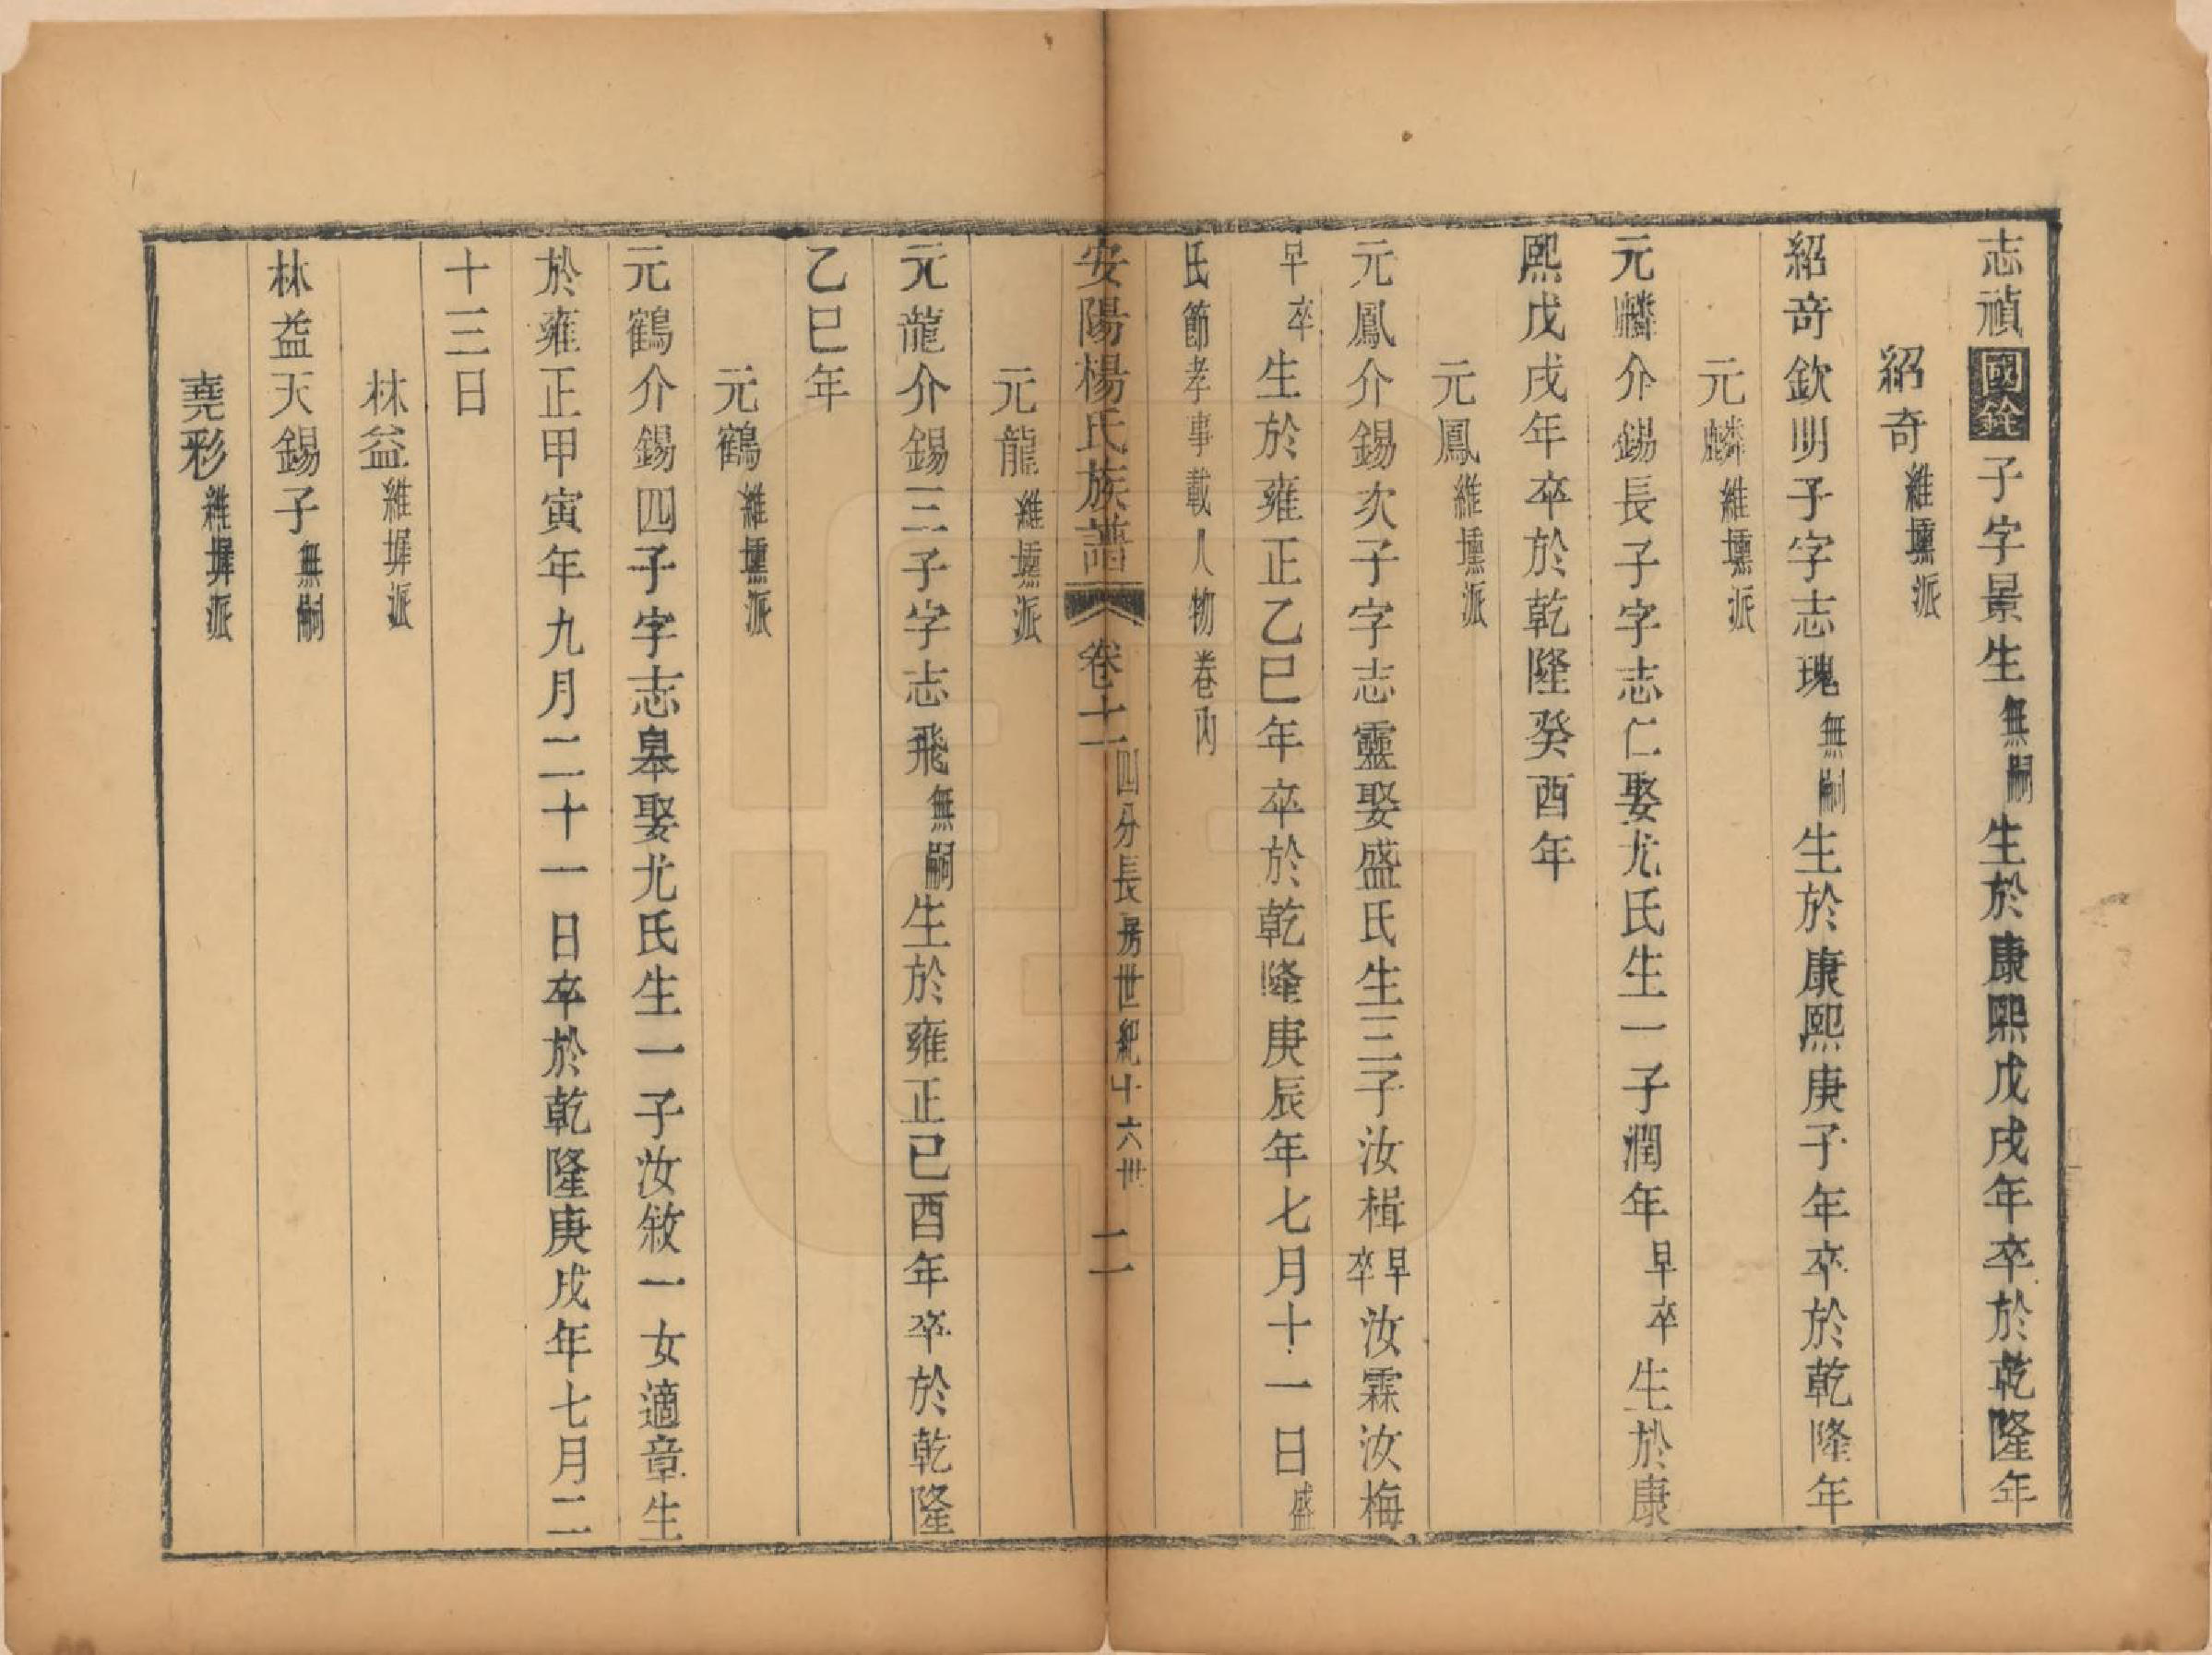 志禎國銓子字景生無嗣生於康熙戊戌年卒於乾隆年
紹奇維壎派
紹奇欽明子字志瑰無嗣生於康熙庚子年卒於乾隆年
元麟維壎派
元麟介錫長子字志仁娶尤氏生一子潤年早卒生於康
熙戊戌年卒於乾隆癸酉年
元鳳維壎派
元鳳介錫次子字志靈娶盛氏生三子汝楫早卒汝霖汝梅
早卒生於雍正乙巳年卒於乾隆庚辰年七月十一日盛
氏節孝事載人物卷內
安陽楊氏族譜卷十一四分長房世紀十六世 二
元龍維壎派
元龍介錫三子字志飛無嗣生於雍正已酉年卒於乾隆
乙巳年
元鶴維壎派
元鶴介錫四子字志皋娶尤氏生一子汝敘一女適章生
於雍正甲寅年九月二十一日卒於乾隆庚戌年七月二
十三日
林益維墀派
林益天錫子無嗣
堯彩維墀派